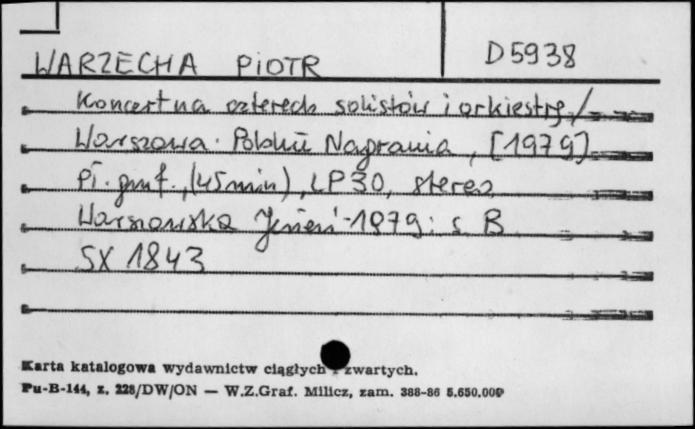 WARZECHA PIOTR D5938
Koncert na czterech solistów i orkiestrę./
Warszawa: Polskie Nagrania, [1979]
Pł. gmf., (45 min), LP30, stereo
Warszawska Jesień-1979: s. B
SX 1843
Karta katalogowa wydawnictw ciągłych i zwartych.
Pu-B-144, z. 228/DW/ON — W.Z.Graf. Milicz, zam. 388-86 5.650.000